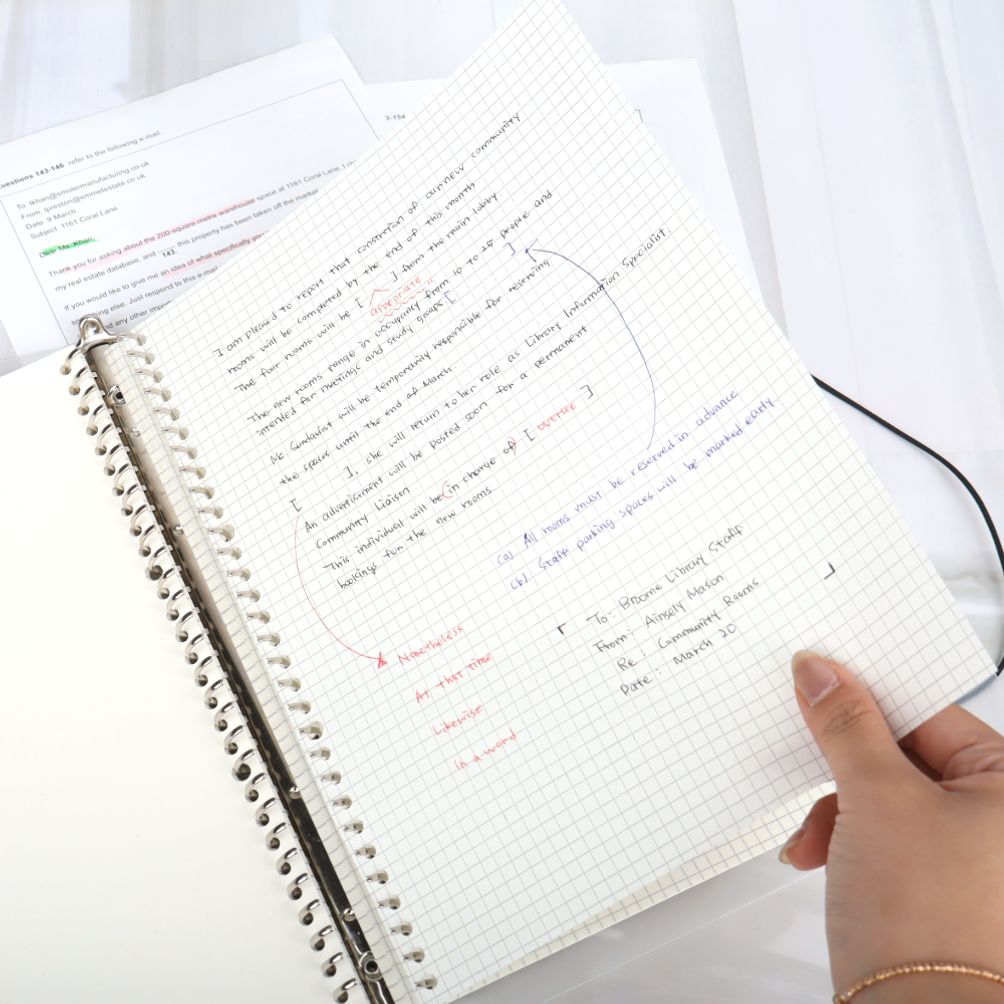 Questions 143-146 refer to the following e-mail.
To
From
Date 9 March
Subject 1161 Coral Lane
Dear Ms. Khan,
Thank you for asking about the 200-square-metre warehouse space at 1161 Coral Lane.
my real estate database, and this property has been taken off the market
143.
If you would like to give me an idea of what specifically
something else. Just respond to this e-mail
and any other
I am pleased to report that construction of our new community
rooms will be completed by the end of this month
The four rooms will be [ ] from the main lobby
The new rooms range in occupancy from 10 to 25 people and
intended for meetings and study groups [ ]
Ms Sundqvist will be temporarily responsible for reserving
the spaces until the end of March
[ ], she will return to her role as Library Information Specialist
An advertisement will be posted soon for a permanent
Community Liaison
This individual will be in charge of [ oversee ]
bookings for the new rooms
(a) All rooms must be reserved in advance
(b) Staff parking spaces will be marked early.
Nonetheless
At that time
Likewise
in a word
To: Broome Library Staff
From: Ainsely Mason
Re: Community Rooms
Date: March 20